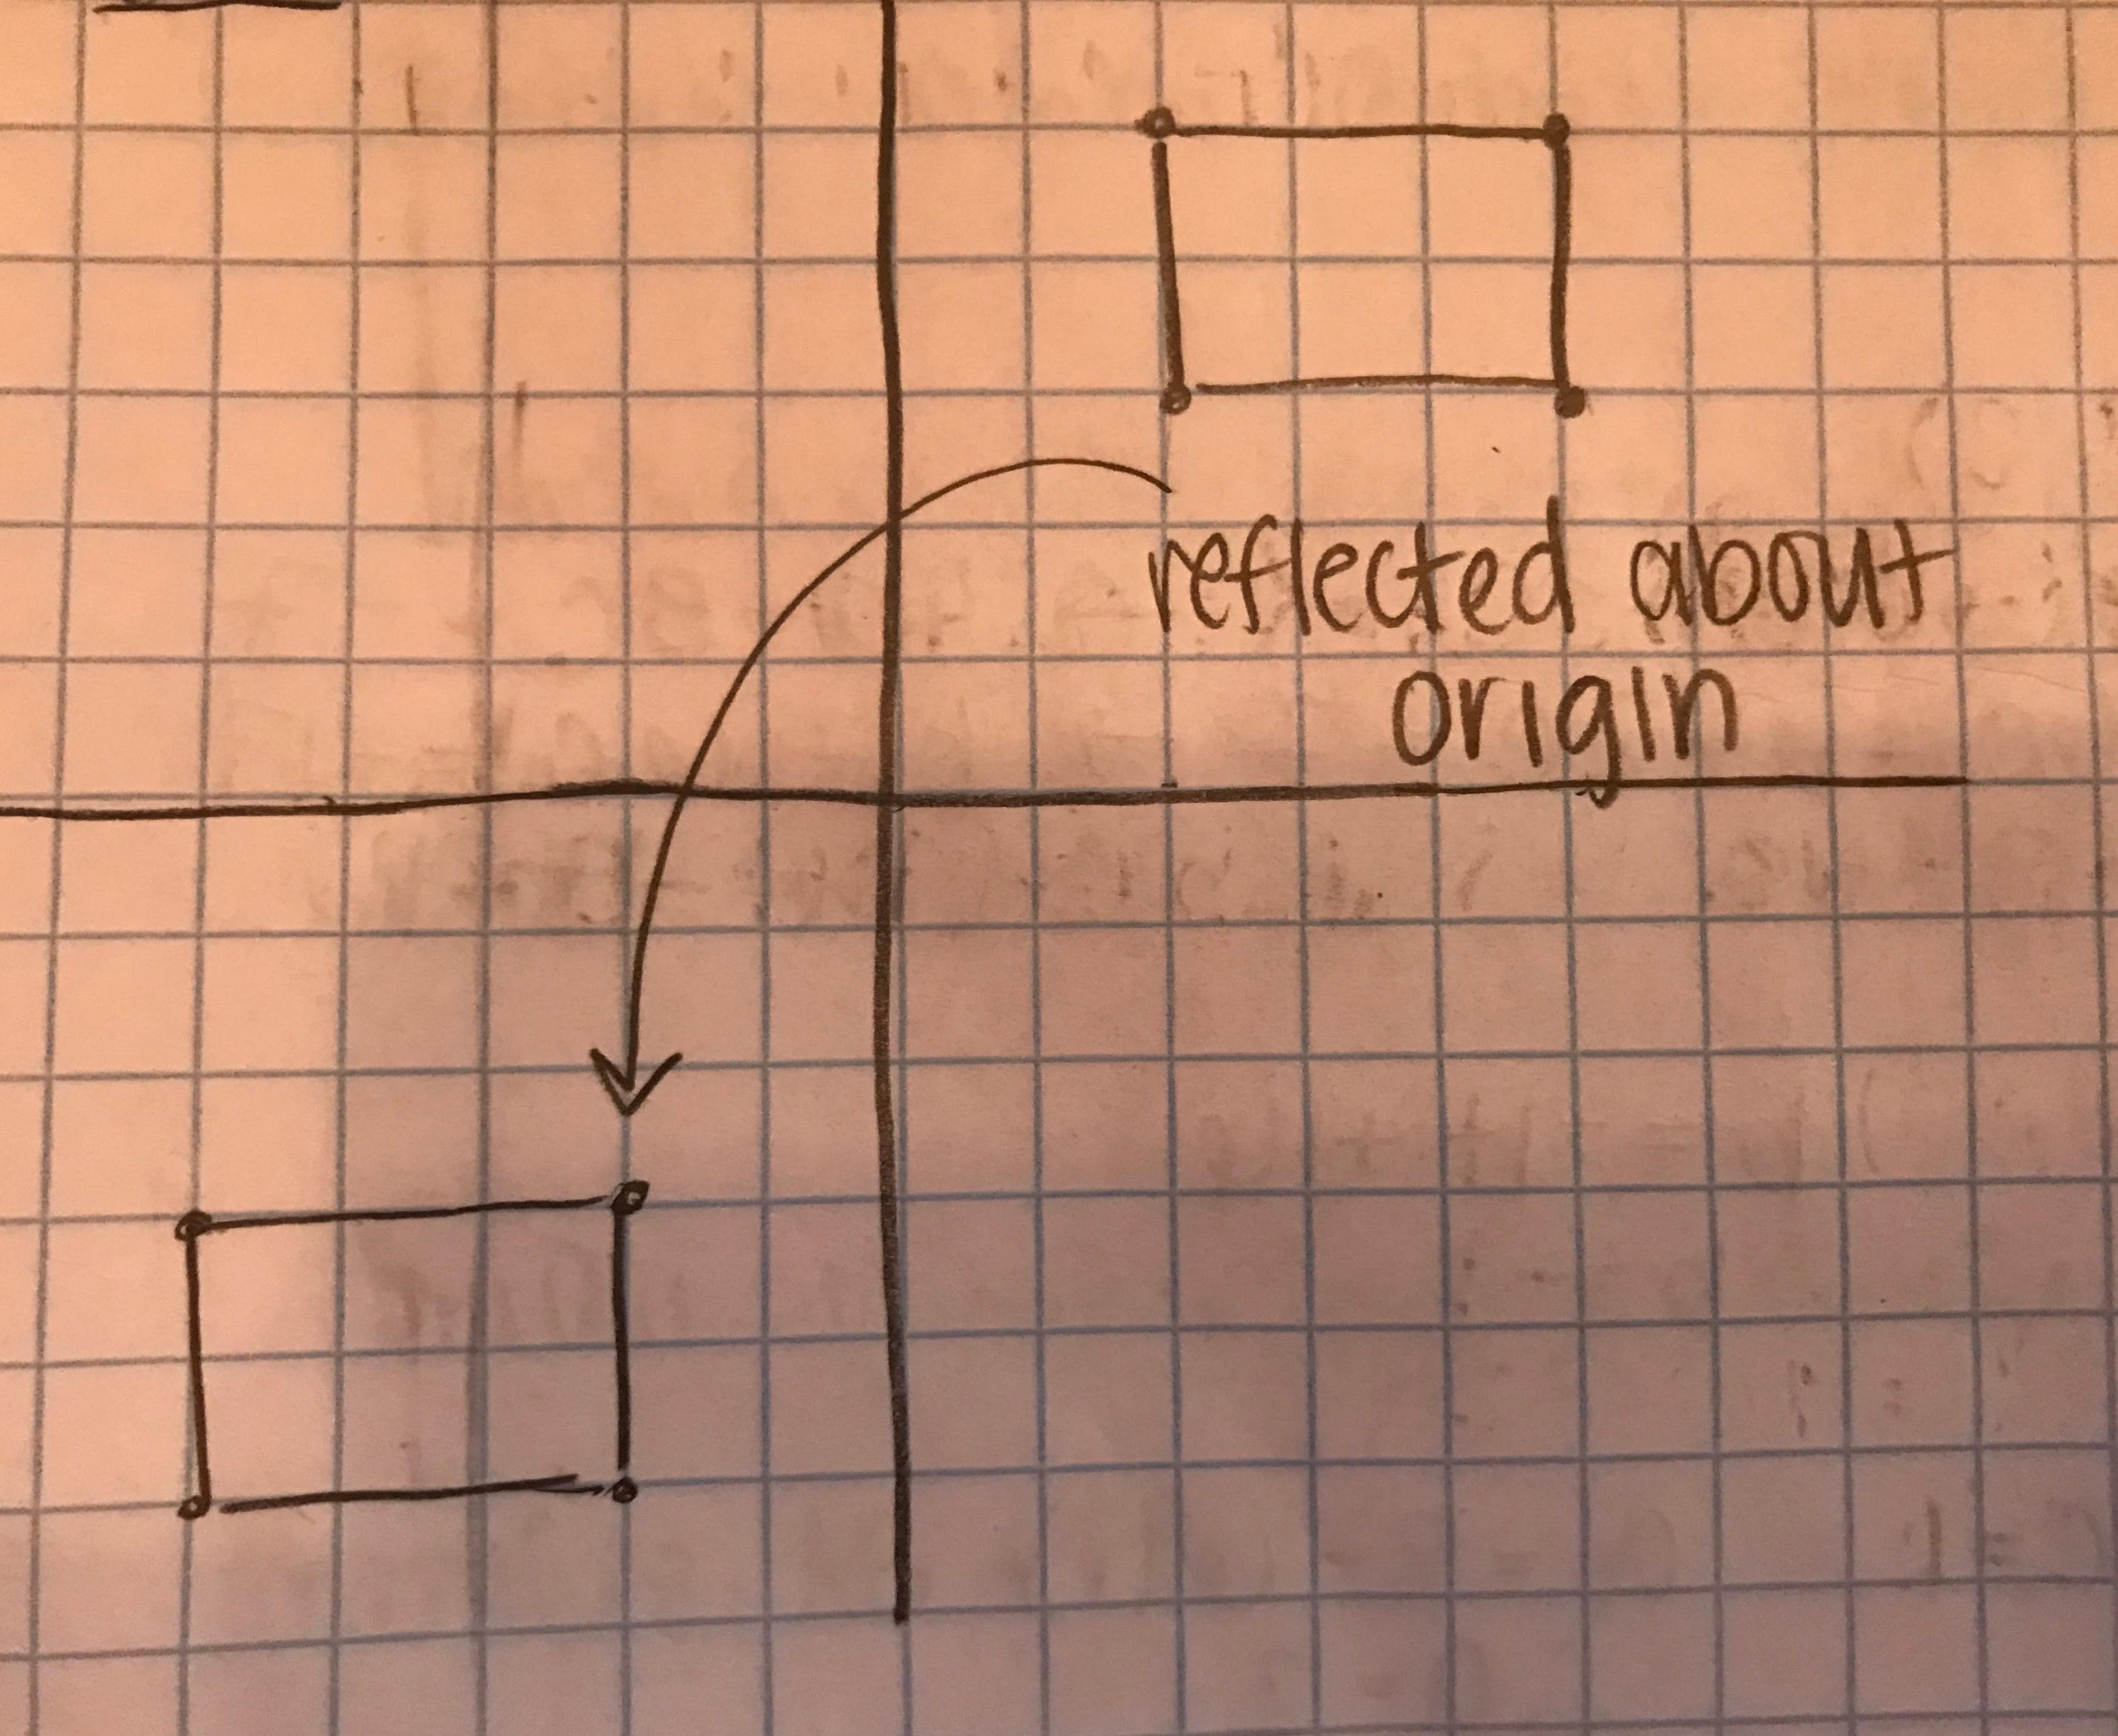 reflected about
origin